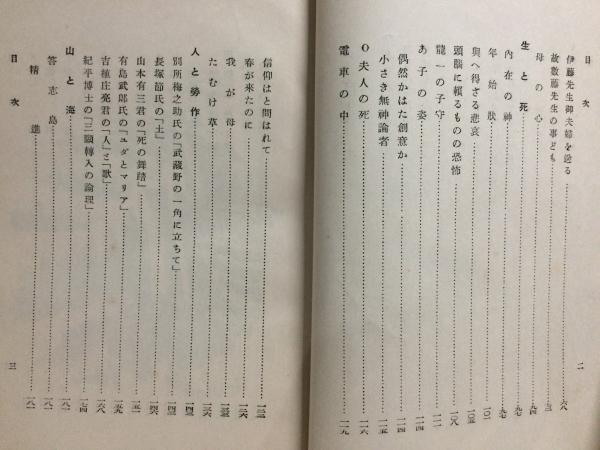 目次 二
伊藤先生御夫婦を……六八
故數藤先生の事ども……
母の心……九四
生と死……九七
內在の神……九七
年始狀……一〇一
與へ得ざる悲哀……一〇五
頭腦に賴るものの恐怖……一〇八
龍一の子守……一一一
あ子の姿……一一四
偶然かはた創意か……一一四
小さき無神論者……一一五
O夫人の死……一一六
電車の中……一一九
信仰はと問はれて……一二三
春が來たのに……一二六
我が母……一三五
たむけ草……一三六
人と勞作……一四三
別所梅之助氏の「武藏野の一角に立ちて」……一四三
長塚節氏の「土」……一四六
山本有三君の「死の舞踏」……一五一
有島武郞氏の「ユダとマリア」……一五九
吉植庄亮君の「人」と「歌」……一六八
紀平博士の「三願轉入の論理」……一七四
山と海……一八一
答志島……一八一
精進……一八一
目次 三